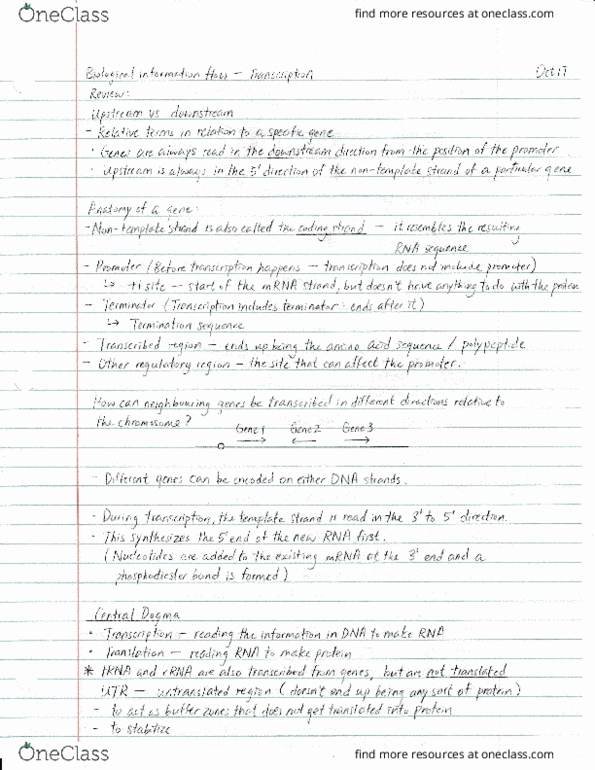 OneClass
find more resources at oneclass.com
Biological information flow – Transcription Oct 17
Review:
Upstream vs downstream
- Relative terms in relation to a specific gene
· Genes are always read in the downstream direction from the position of the promoter
· Upstream is always in the 5' direction of the non-template strand of a particular gene
Anatomy of a gene:
- Non-template strand is also called the coding strand – it resembles the resulting
RNA sequence
- Promoter (Before transcription happens – transcription does not include promoter)
↳ +1 site – start of the mRNA strand, but doesn't have anything to do with the protein
- Terminator (Transcription includes terminator: ends after it)
↳ Termination sequence
- Transcribed region – ends up being the amino acid sequence / polypeptide
- Other regulatory region – the site that can affect the promoter.
How can neighbouring genes be transcribed in different directions relative to
the chromosome?
Gene 1 Gene 2 Gene 3
- Different genes can be encoded on either DNA strands.
- During transcription, the template strand is read in the 3' to 5' direction.
· This synthesizes the 5' end of the new RNA first.
(Nucleotides are added to the existing mRNA at the 3' end and a
phosphodiester bond is formed)
Central Dogma
· Transcription – reading the information in DNA to make RNA
· Translation – reading RNA to make protein
* tRNA and rRNA are also transcribed from genes, but are not translated
UTR – untranslated region (doesn't end up being any sort of protein)
- to act as buffer zones that does not get translated into protein
- to stabilize
OneClass
find more resources at oneclass.com